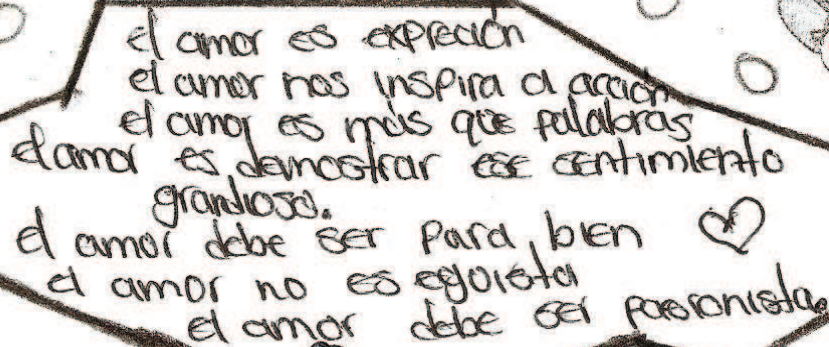 el amor es expreción
el amor nos inspira a acción
el amor es más que palabras
el amor es demostrar ese sentimiento
grandioso.
el amor debe ser para bien
el amor no es egoista
el amor debe ser pasionista.